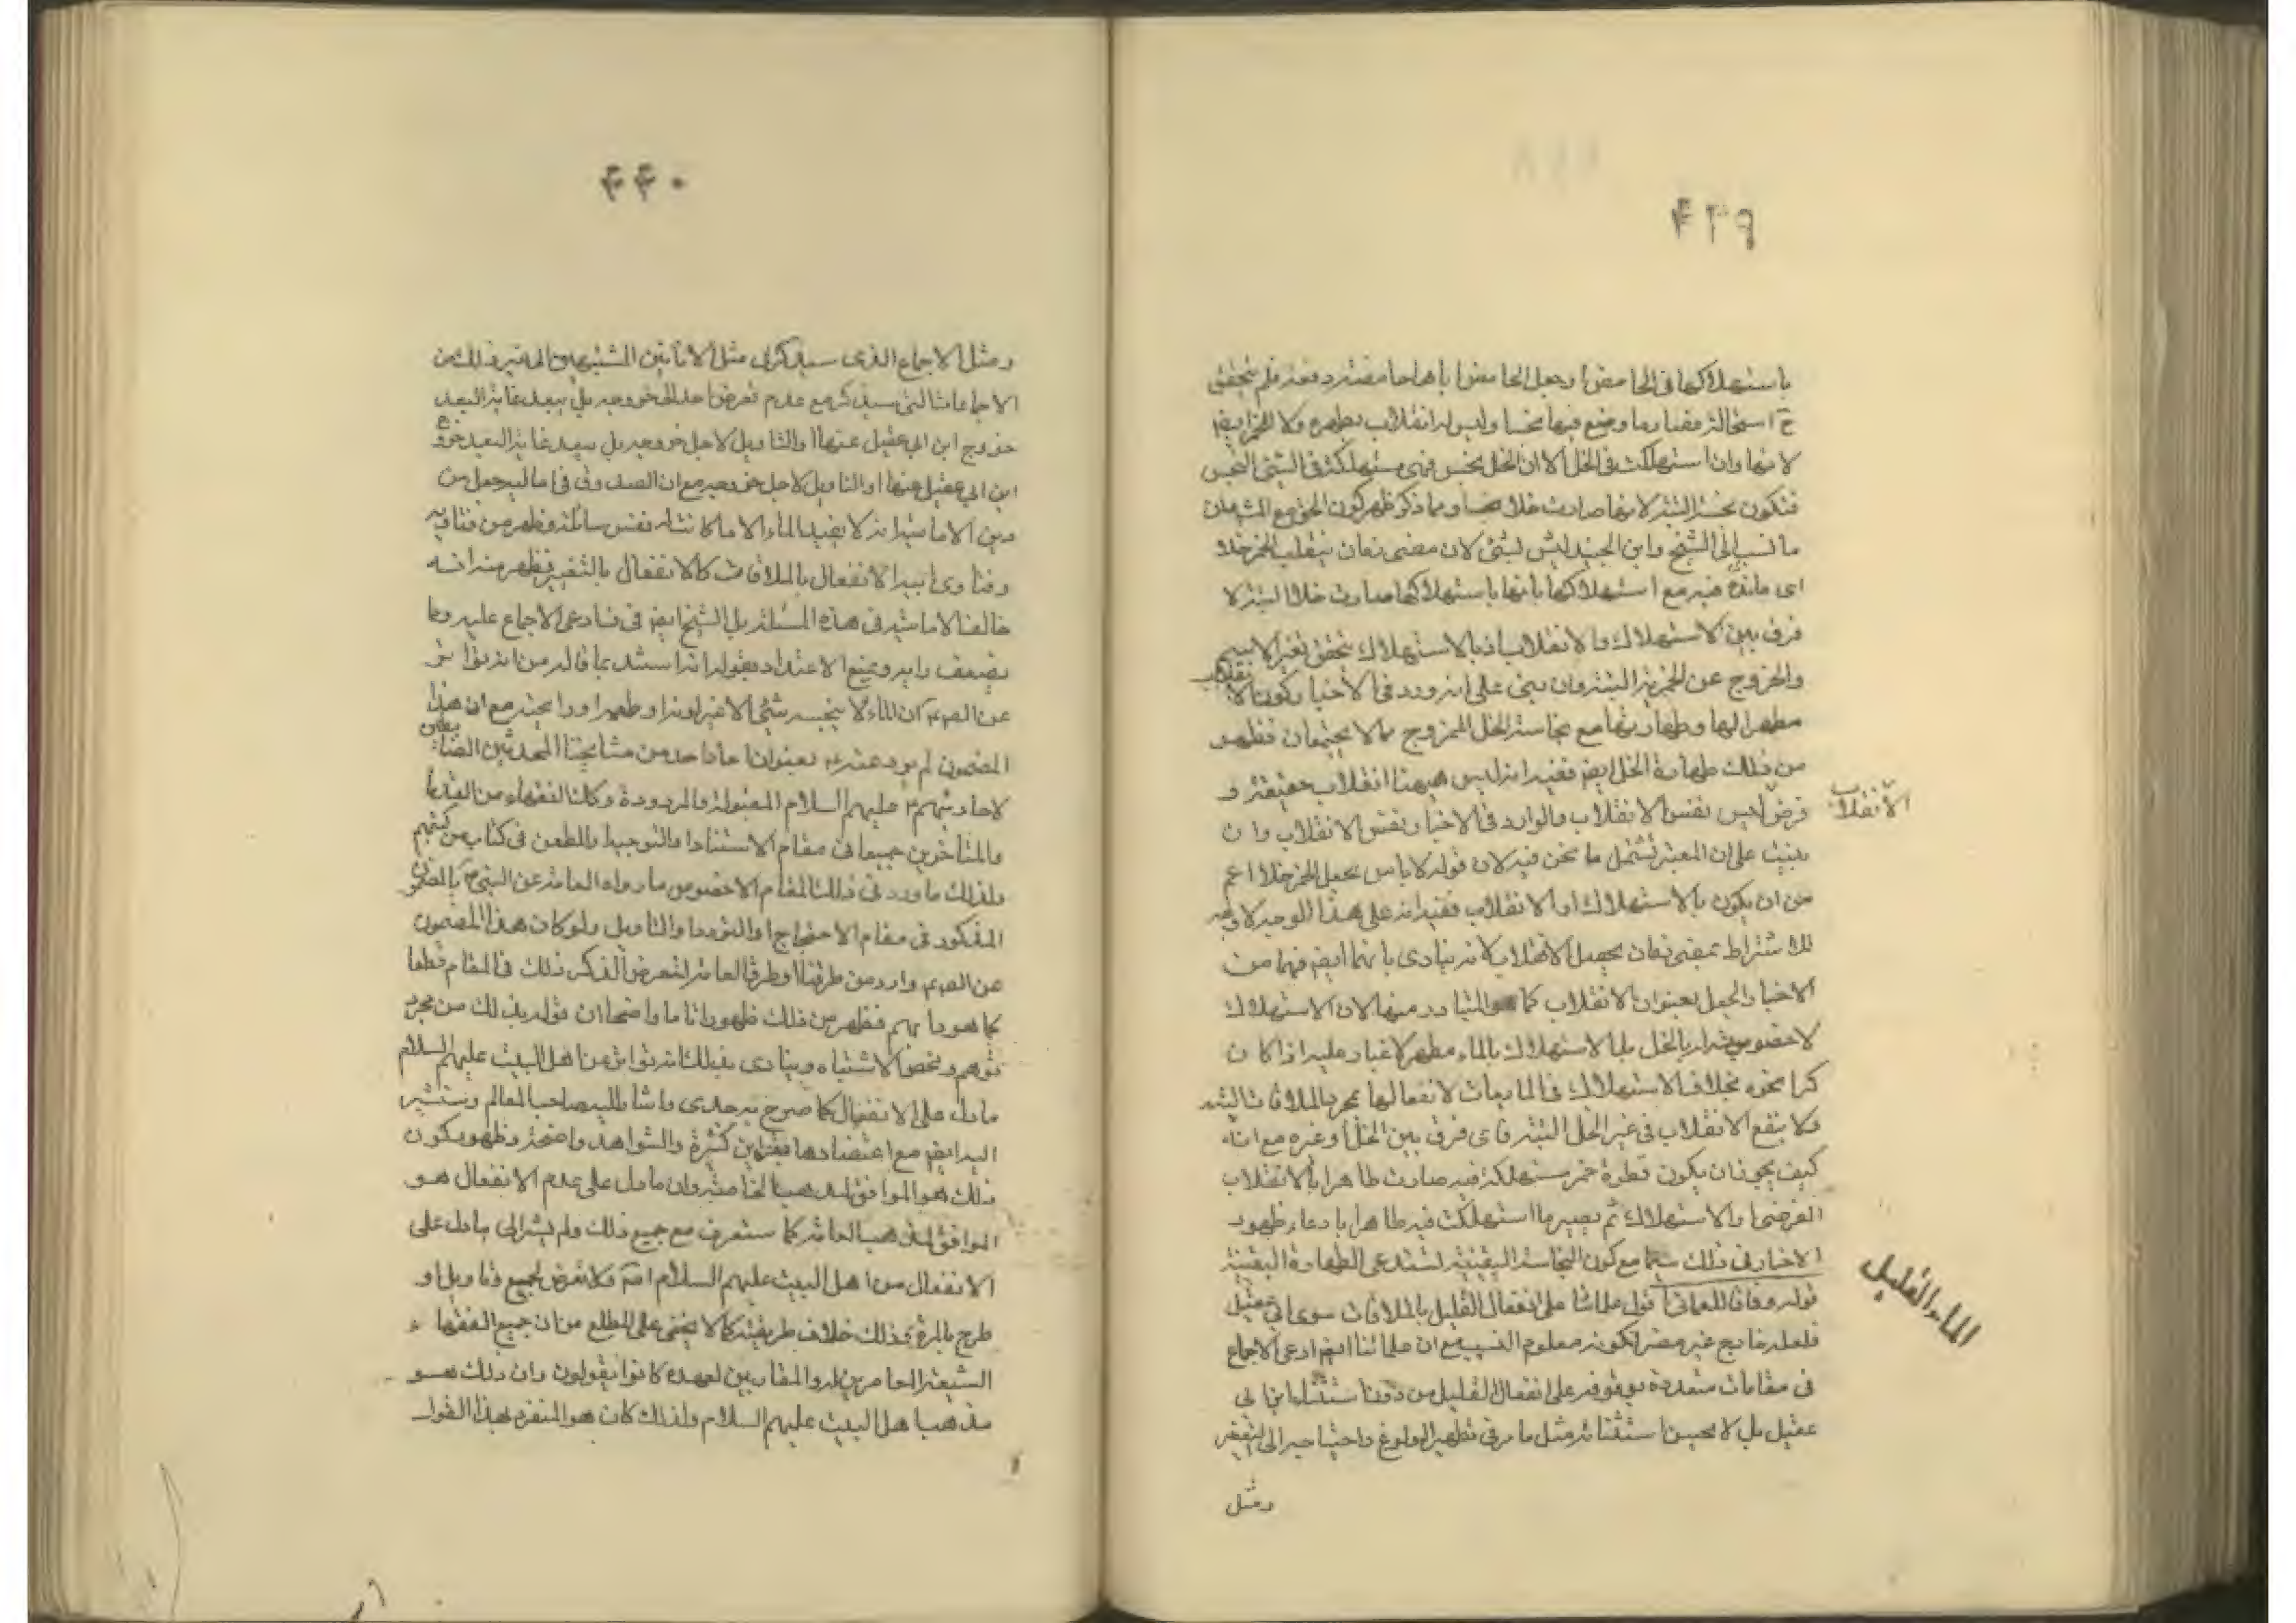 ۴۳۹
باستهلاكها في الحامض او جعل الحامض باهاحامضته دفعة فلم يتحقق
ح استحالة فمنا وما وضع فيها نجسا وليس له انقلاب يطهره ولا للخمر ايضا
لانها وان استهلكت في الخل الا ان الخل نجس فهي مستهلكة في الشيء النجس
فتكون نجسة البتة لانها صارت خلا نجسا ومما ذكر ظهر كون الحق مع المشهور وان
ما نسب الى الشيخ وابن الجنيد ليس بشئ لان مضي زمان ينقلب الخمر خلا
اى فائدة فيه مع استهلاكها بانها باستهلاكها صارت خلا البتة لا
فرق بين الاستهلاك والانقلاب اذ بالاستهلاك يتحقق تغير الاسم
والخروج عن الخمرية البتة وان بنى على انه ورد في الاخبار كون الانقلاب
مطهرا لها وطهارتها مع نجاسة الخل الممزوج مما لا يجتمعان فظهر
من ذلك طهارة الخل ايضا ففيه انه ليس هيهنا انقلاب حقيقة و
فرض ليس نفس الانقلاب والوارد في الاخبار نفس الانقلاب وان
الانقلاب
بنيت على ان المعتبر تشتمل ما نحن فيه لان قوله لا باس بجعل الخمر خلا اعم
من ان يكون بالاستهلاك او الانقلاب ففيه انه على هذا الوجه لا وجه
للاشتراط بمضي زمان يحصل الانقلاب لانه ينادى بانهما ايضا فهما من
الاخبار الجعل بعنوان الانقلاب كما هو المتبادر منها لان الاستهلاك
لا خصوصية له بالخل بل الاستهلاك بالماء مطهر لا غبار عليه اذا كان
كرا نحوه بخلاف الاستهلاك في المايعات لانفعالها بمجرد الملاقات البتة
فلا ينفع الانقلاب في غير الخل البتة فاى فرق بين الخل وغيره مع انه
كيف يجوز ان يكون قطرة خمر مستهلكة فيه صارت طاهرا بالانقلاب
الفرضى والاستهلاك ثم يصير ما استهلكت فيه طاهرا بادعاء ظهور
الاخبار في ذلك سيما مع كون النجاسة اليقينية تستدعى الطهارة اليقينية
الماء القليل
قوله وفاقا للعماني اقول علمائنا على انفعال القليل بالملاقات سوى ابن ابي عقيل
فلعله خارج غير مضر لكونه معلوم النسب مع ان علمائنا ايضا ادعى الاجماع
في مقامات متعددة على انفعال القليل من دون استثناء ابن ابي
عقيل بل لا يحسن استثنائه مثل ما مر في تطهير الولوغ واحتياجه الى التعفير
ومثل
۴۴۰
ومثل الاجماع الذى سيذكر في مثل الانائين المشتبهين الى غير ذلك من
الاجماعات التى سيذكر مع عدم تعرض احد لخروجه بل بعيد غاية البعد
خروج ابن ابي عقيل عنها او التاويل لاجل خروجه بل بعيد غاية البعد خروج
ابن ابي عقيل عنها او التاويل لاجل خروجه مع ان الصدوق في اماليه جعل من
دين الامامية انه لا يفسد الماء الا ما كانت له نفس سائلة وظهر من فتاويه
وفتاوى ابيه الانفعال بالملاقات كالانفعال بالتغيير فظهر منه انه
خالف الامامية في هذه المسئلة بل الشيخ ايضا في ادعى الاجماع عليه ومما
يضعف رايه ويمنع الاعتداد بقوله انه استند بما قاله من انه تواتر
عن الصادق ع ان الماء لا ينجسه شئ الا غير لونه او طعمه او رائحته مع ان هذا
المضمون لم يرد عنه ع بعنوان احاد احد من مشايخنا المحدثين الضابطين
لاحاديثهم عليهم السلام المقبولة والمردودة وكذا الفقهاء من القدماء
والمتاخرين جميعا في مقام الاستناد او التوجيه او الطعن في كتاب من كتبهم
ولذلك ما ورد في ذلك المقام الا خصوص ما رواه العامة عن النبي ص بالمضمون
المذكور في مقام الاحتجاج او التورد او التاويل ولو كان هذا المضمون
عن الصادق ع وارد من طرقنا او طرق العامة لتعرض لذكر ذلك في المقام قطعا
كما هو دابهم فظهر من ذلك ظهورا تاما واضحا ان قوله بذلك من مجرد
توهم ومحض الاشتباه وينادى بذلك انه تواتر عن اهل البيت عليهم السلام
ما دل على الانفعال كما صرح به جدى واشار اليه صاحب المعالم وستشير
اليه ايضا مع اعتضادها بقراين كثيرة والشواهد واضحة وظهور كون
ذلك هو الموافق لمذهب الخاصة وان ما دل على عدم الانفعال هو
الموافق لمذهب العامة كما ستعرف مع جميع ذلك ولم يشر الى ما دل على
الانفعال من اهل البيت عليهم السلام اصلا ولا تعرض لجمع وتاويل او
طرح بالمرة وذلك خلاف طريقته كما لا يخفى على المطلع من ان جميع الفقهاء
الشيعة المعاصرين له والمقاربين لعهده كانوا يقولون وان ذلك هو
مذهب اهل البيت عليهم السلام ولذلك كان هو المتفرد بهذا القول